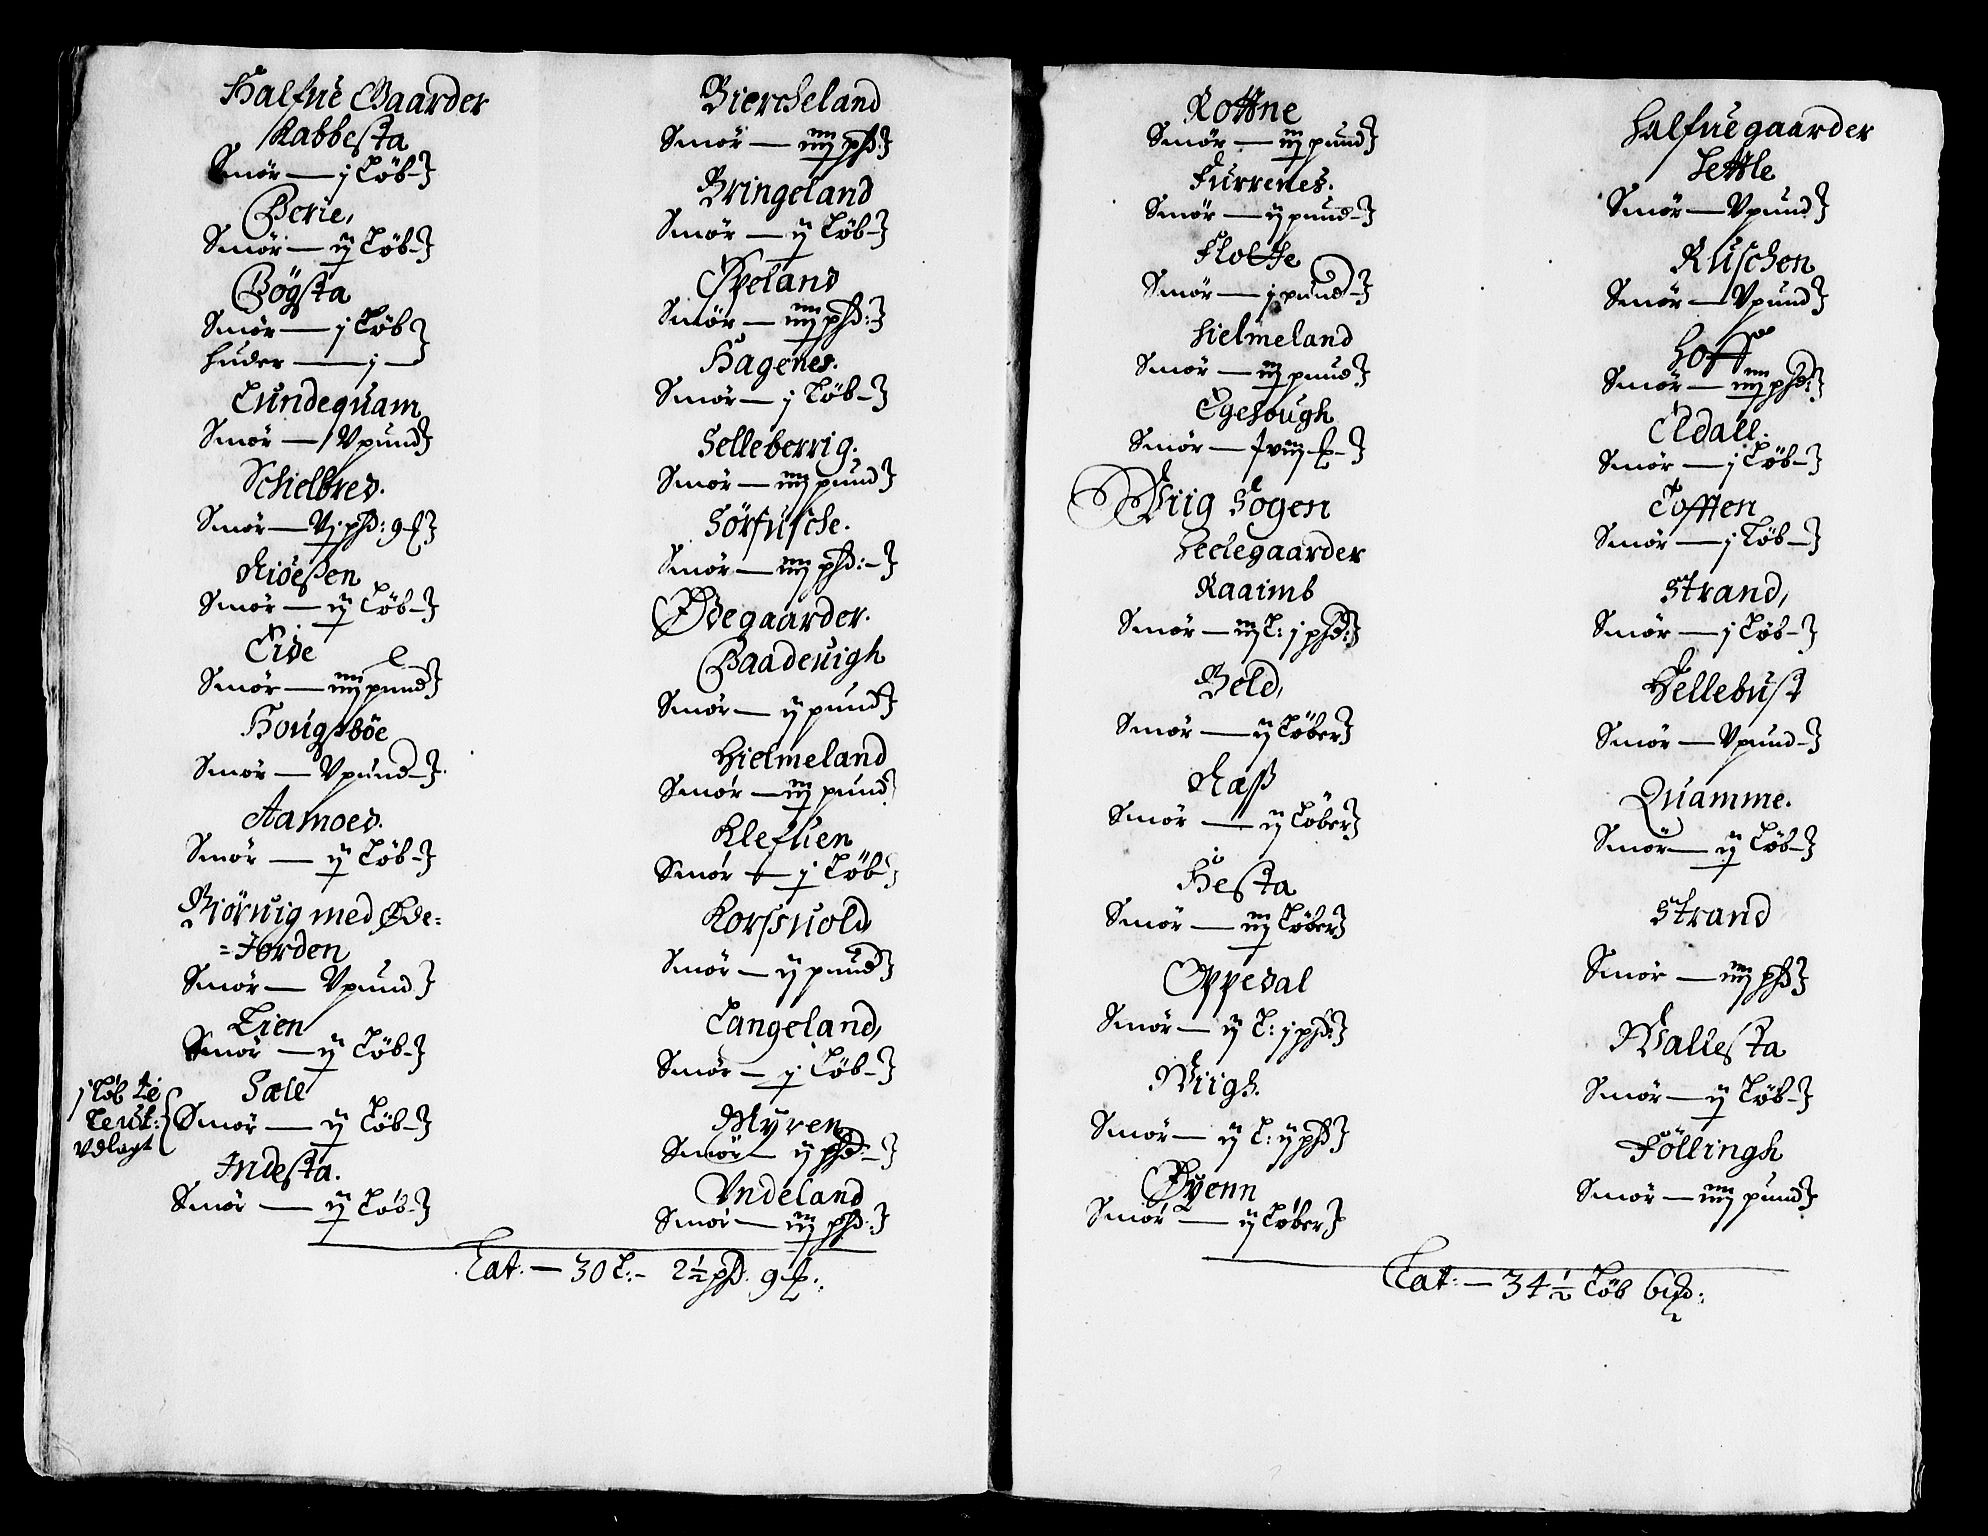 Halfue Gaarder
Rabbesta
Smør — j Løb
Berie,
Smør — ij Løb
Bøgsta
Smør — j Løb
huder — j
Lundequam
Smør — V pund
Schielbred.
Smør — Vj phd: 9
Smør — ij Løb
Eide
Smør — iiij pund
Hougsbøe
Smør — V pund
Aamoed.
Smør — ij Løb
Biøruig med Øde=
=Jorden
Smør — V pund
Lien
Smør — ij Løb
j Løb
Sæle
Smør — ij Løb
Vdlagt
Indesta.
Smør — ij Løb
Biercheland
Smør — iiij phd:
Bringeland
Smør — ij Løb
Espeland
Smør — iiij phd:
Hagenes.
Smør — j Løb
Selleberrig.
Smør — iiij pund
Sørfusche.
Smør — iiij phd:
Ødegaarder.
Baadeuigh
Smør — ij pund
Hielmeland
Smør — iij pund
Klefuen
Smør — j Løb
Korssuold
Smør — ij pund
Langeland,
Smør — j Løb
Myren
Smør — ij phd:
Vndeland
Smør — iij phd:
Lat: — 30 L:— 2½ phd. 9
Rottne
Smør — iij pund
Furrenes.
Smør — ij pund
Flotte
Smør — j pund
Hielmeland
Smør — iij pund
Egesough
Smør —
Wiig Sogen
Heelegaarder
Raaimb
Smør — iij L: j phd:
Beld,
Smør — ij Løber
Næss
Smør — ij Løber
Hesta
Smør — iij Løber
Oppedal
Smør — ij L: j phd:
Wiigh.
Smør — ij L: ij phd
Øyenn
Smør — ij Løber
Halfuegaarder
Settle
Smør — V pund
Ruschen
Smør — V pund
Hoff
Smør — iiij phd:
Eldall.
Smør — j Løb
Tofften
Smør — j Løb
Strand,
Smør — j Løb
Hellebust
Smør — V pund
Quamme.
Smør — ij Løb
Strand
Smør — iiij phd
Wallesta
Smør — ij Løb
Føllingh
Smør — iiij pund
Lat: — 34½ Løb